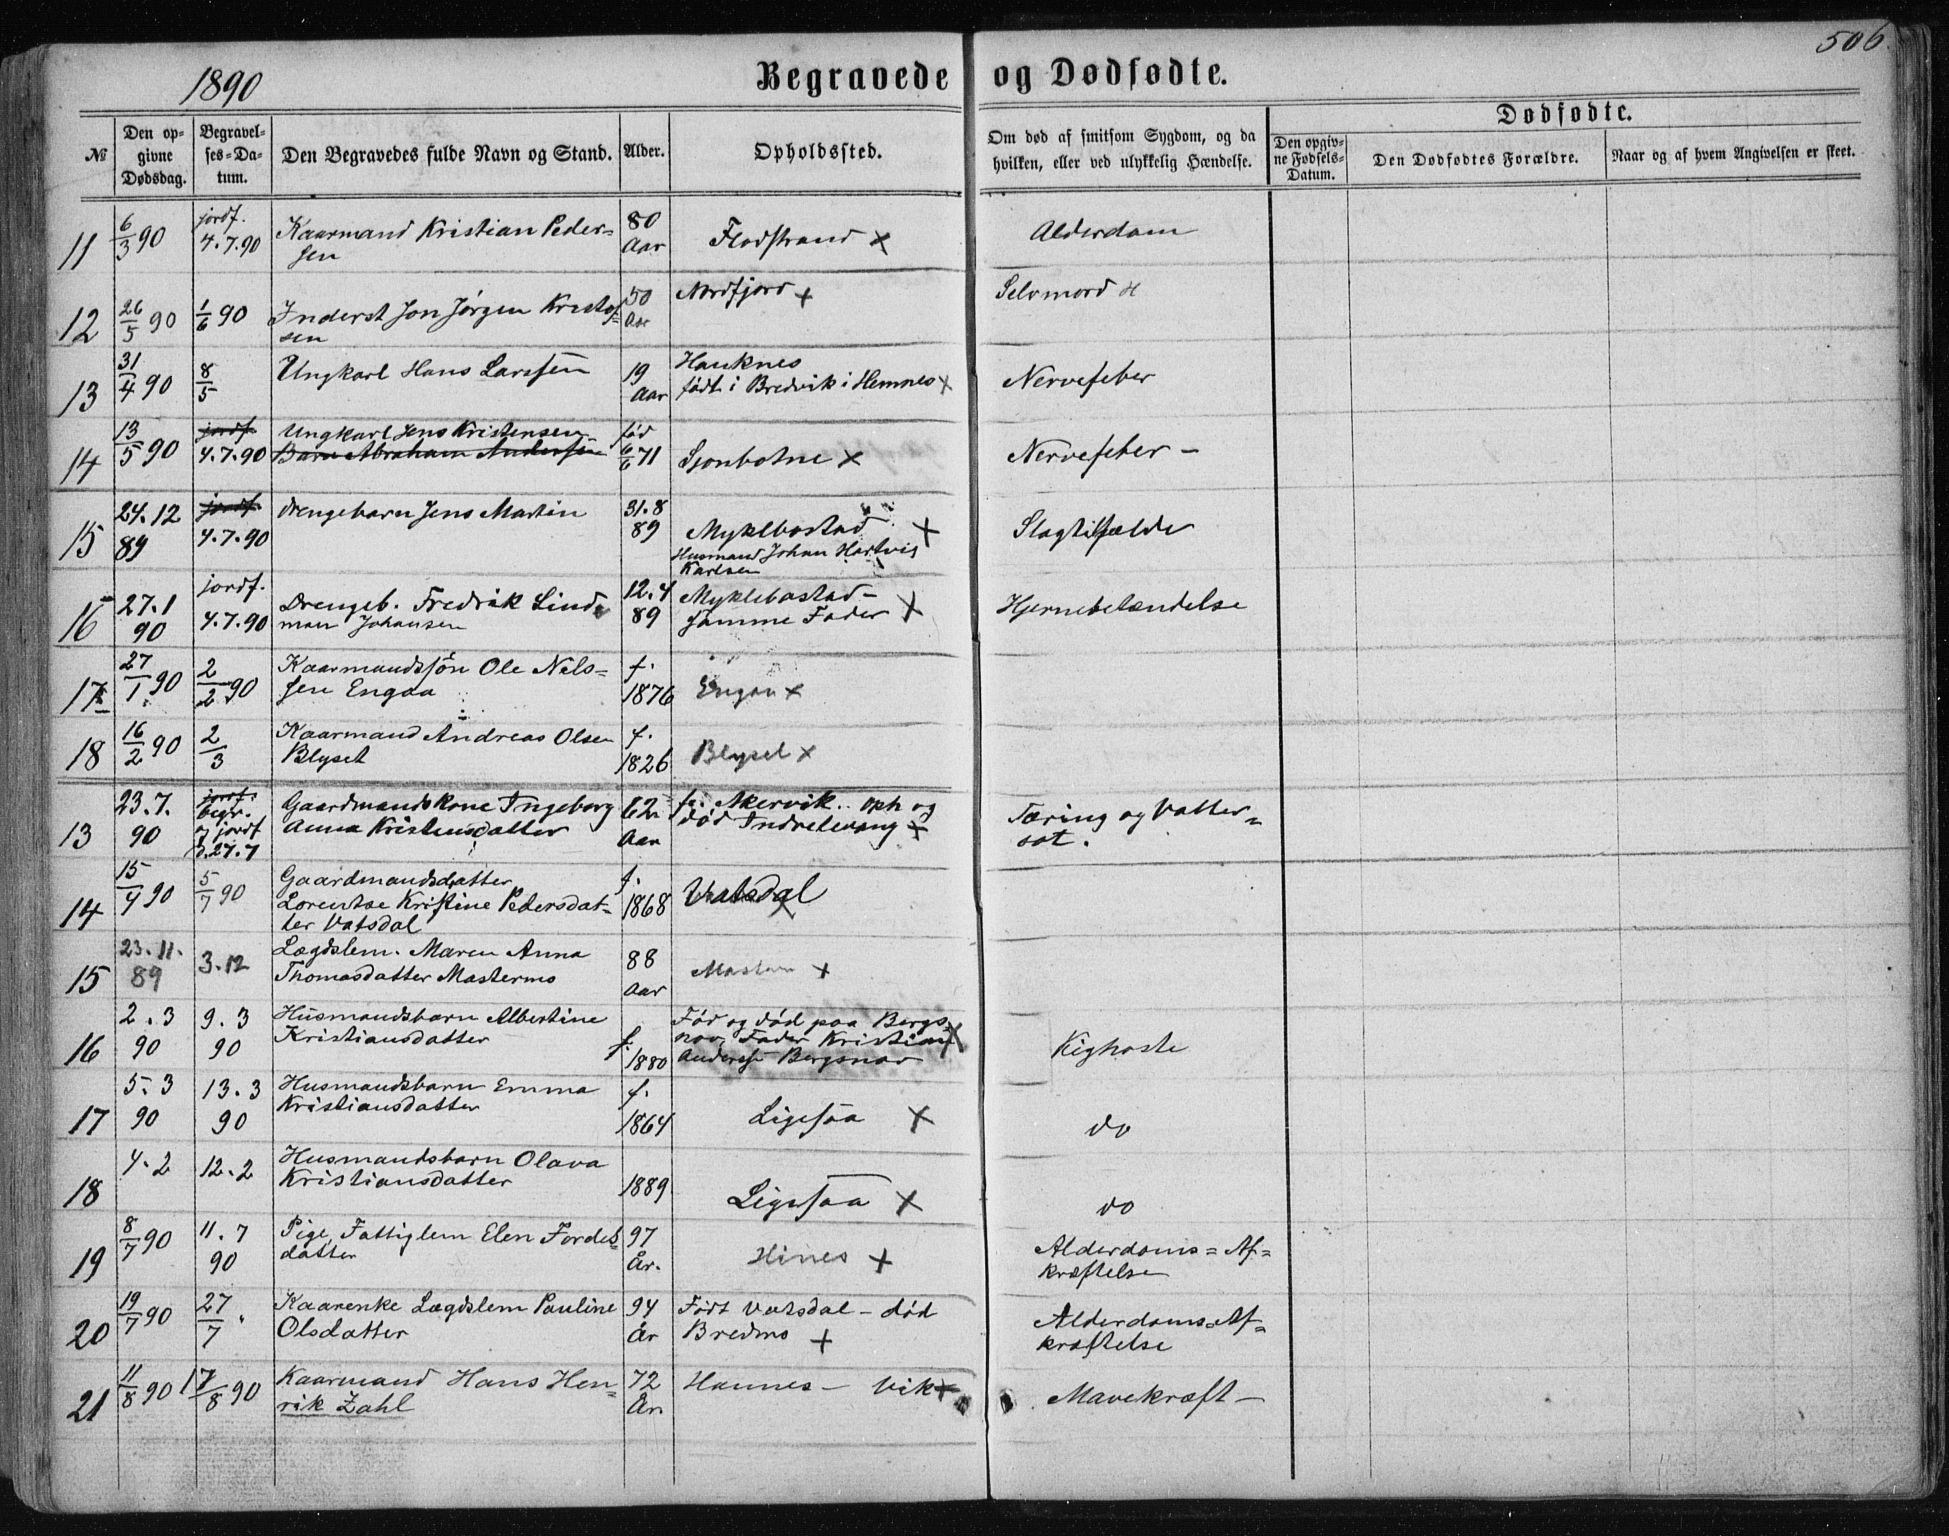 506.
1890
Begravede og Dødfødte.
Dødfødte.
№
Den op-
givne
Dødsdag.
Begravel-
ses-Da-
tum.
Den Begravedes fulde Navn og Stand.
Alder.
Opholdssted.
Om død af smitsom Sygdom, og da
hvilken, eller ved ulykkelig Hændelse.
Den opgiv-
ne Fødsels-
Datum.
Den Dødfødtes Forældre.
Naar og af hvem Angivelsen er skeet.
11 6/3 90 jordf. 4.7.90 Kaarmand Kristian Peder= 80 Aar Flostrand x Alderdom
sen
12 26/5 90 1/6 90 Inderst Jon Jørgen Kristof= 50 Aar Nordfjord + Selvmord
sen
13 31/4 90 8/5 Ungkarl Hans Larssen 19 Aar Hauknes Nervefeber
født i Bredvik i Hemnes x
14 13/5 90 jordf. 4.7.90 Ungkarl Jens Kristensen fød 6/6 71 Sjonbotne x Nervefeber –
Barn Abraham Andersen
15 24.12 89 jordf. 4.7.90 drengebarn Jens Martin 31.8 89 Myklebostad + Slagtilfælde
Husmand Johan Hartvig
Karlsen
16 27.1 90 jordf. 4.7.90 Drengeb. Fredrik Lind= 12.4 89 Myklebostad – Hjernebetændelse
man Johansen samme Fader x
17 27/1 90 2/2 90 Kaarmandssøn Ole Nels= f. 1876 Engaa x
sen Engaa
18 16/2 90 2/3 Kaarmand Andreas Olsen f. 1826 Blysel x
Blyset
13 23.7. 90 jordf. begr. 7 jordf. d. 27.7 Gaardmandskone Ingeborg 62 Aar f. Akervik. oph og Tæring og Vatter=
Anna Kristensdatter død Indrelevang x sot.
14 15/4 90 5/7 90 Gaardmandsdatter f. 1868 Vatsdal x
Lorentse Kristine Pedersdat=
ter Vatsdal
15 23.11. 89 3.12 Lægdslem. Maren Anna 88 Aar +
Thomasdatter Mastermo
16 2.3 90 9.3 90 Husmandsbarn Albertine f. 1880 Fød og død paa Bergs= Kighoste
Kristiansdatter nov Fader Kristian x
Anders Bergsnov
17 5.3 90 13.3 90 Husmandsbarn Emma f. 1864 Ligefaa x do
Kristiansdatter
18 4.2 12.2 Husmandsbarn Olava 1889 Ligesaa x do
Kristiansdatter
19 8/7 90 11.7 90 Pige, Fattiglem Elen Fordels= 97 År. Hines + Alderdoms=Af=
datter kræftelse
20 19/7 90 27/7 " Kaarenke Lægdslem Pauline 94 År Født Vatsdal – død Alderdoms=Af=
Olsdatter Bredmo + kræftelse
21 11/8 90 17/8 90 Kaarmand Hans Hen= 72 År Hannes – Vik + Mavekræft –
rik Zahl